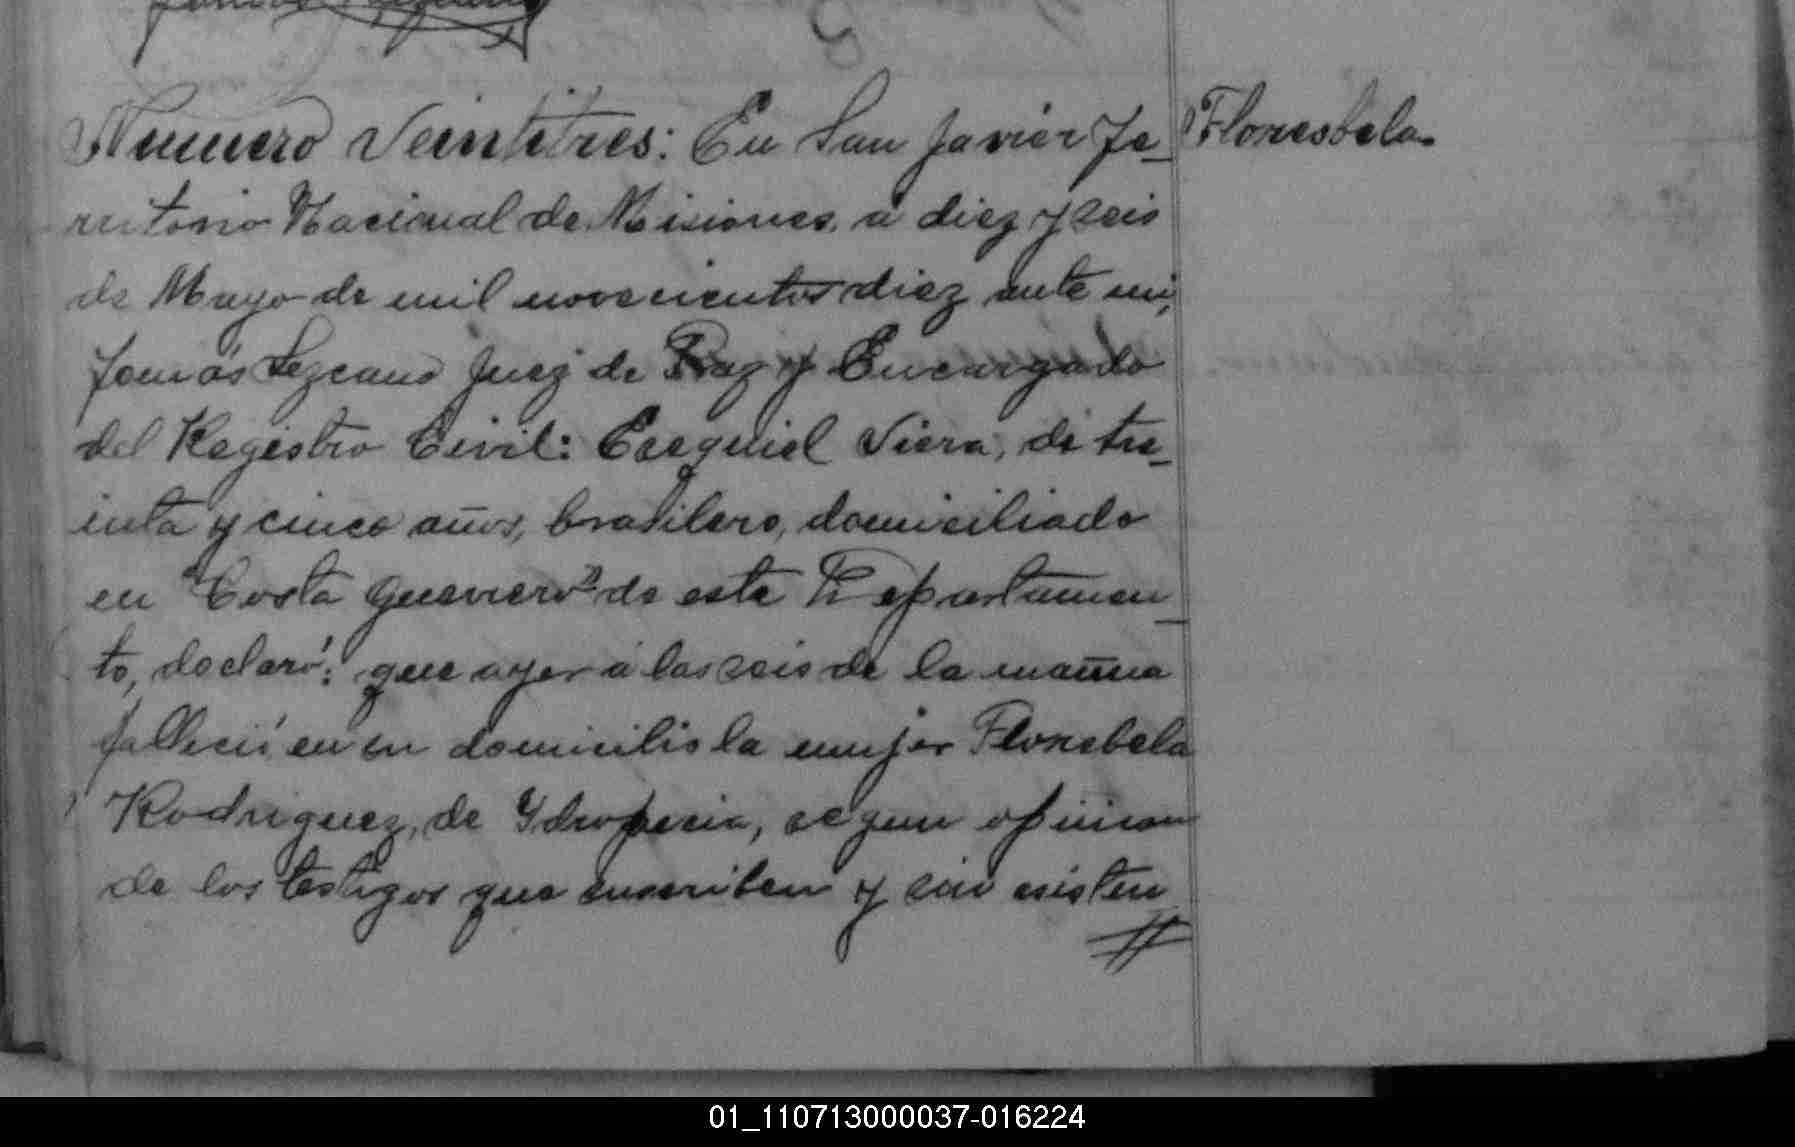 Numero Veintitres: En San Javier Te-
rritorio Nacional de Misiones, á diez y seis
de Mayo de mil novecientos diez ante mi,
Tomás Lezcano Juez de Paz y Encargado
del Registro Civil: Esequiel Viera, de tre-
inta y cinco años, brasilero, domiciliado
en "Costa Guerrero" de este Departamen-
to, declaró: que ayer á las seis de la mañna
falleció en su domicilio la mujer Florebela
Rodriguez, de Ydropecia, segun opinion
de los testigos que suscriben y sin asisten
Floresbela.
01_110713000037-016224